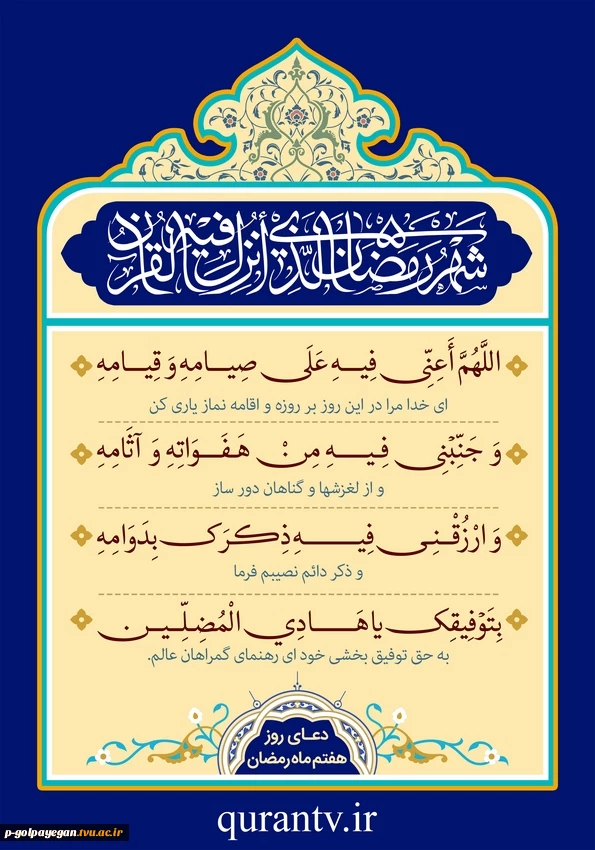 شَهْرُ رَمَضَانَ الَّذِي أُنْزِلَ فِيهِ الْقُرْآنُ
اللَّهُمَّ أَعِنِّی فِیهِ عَلَی صِیَامِهِ وَ قِیَامِهِ
ای خدا مرا در این روز بر روزه و اقامه نماز یاری کن
وَ جَنِّبْنِی فِیهِ مِنْ هَفَوَاتِهِ وَ آثَامِهِ
و از لغزشها و گناهان دور ساز
وَ ارْزُقْنِی فِیهِ ذِکرَک بِدَوَامِهِ
و ذکر دائم نصیبم فرما
بِتَوْفِیقِک یا هَادِي الْمُضِلِّین
به حق توفیق بخشی خود ای رهنمای گمراهان عالم.
دعای روز
هفتم ماه رمضان
qurantv.ir
p-golpayegan.tvu.ac.ir